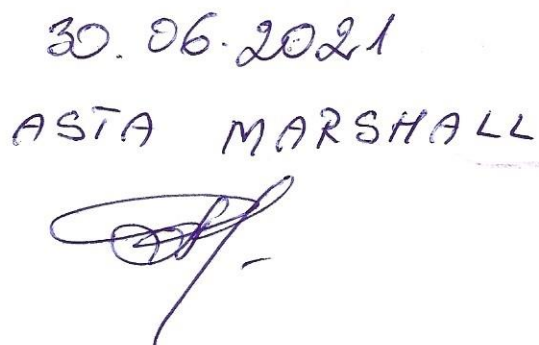 30.06.2021
ASTA MARSHALL